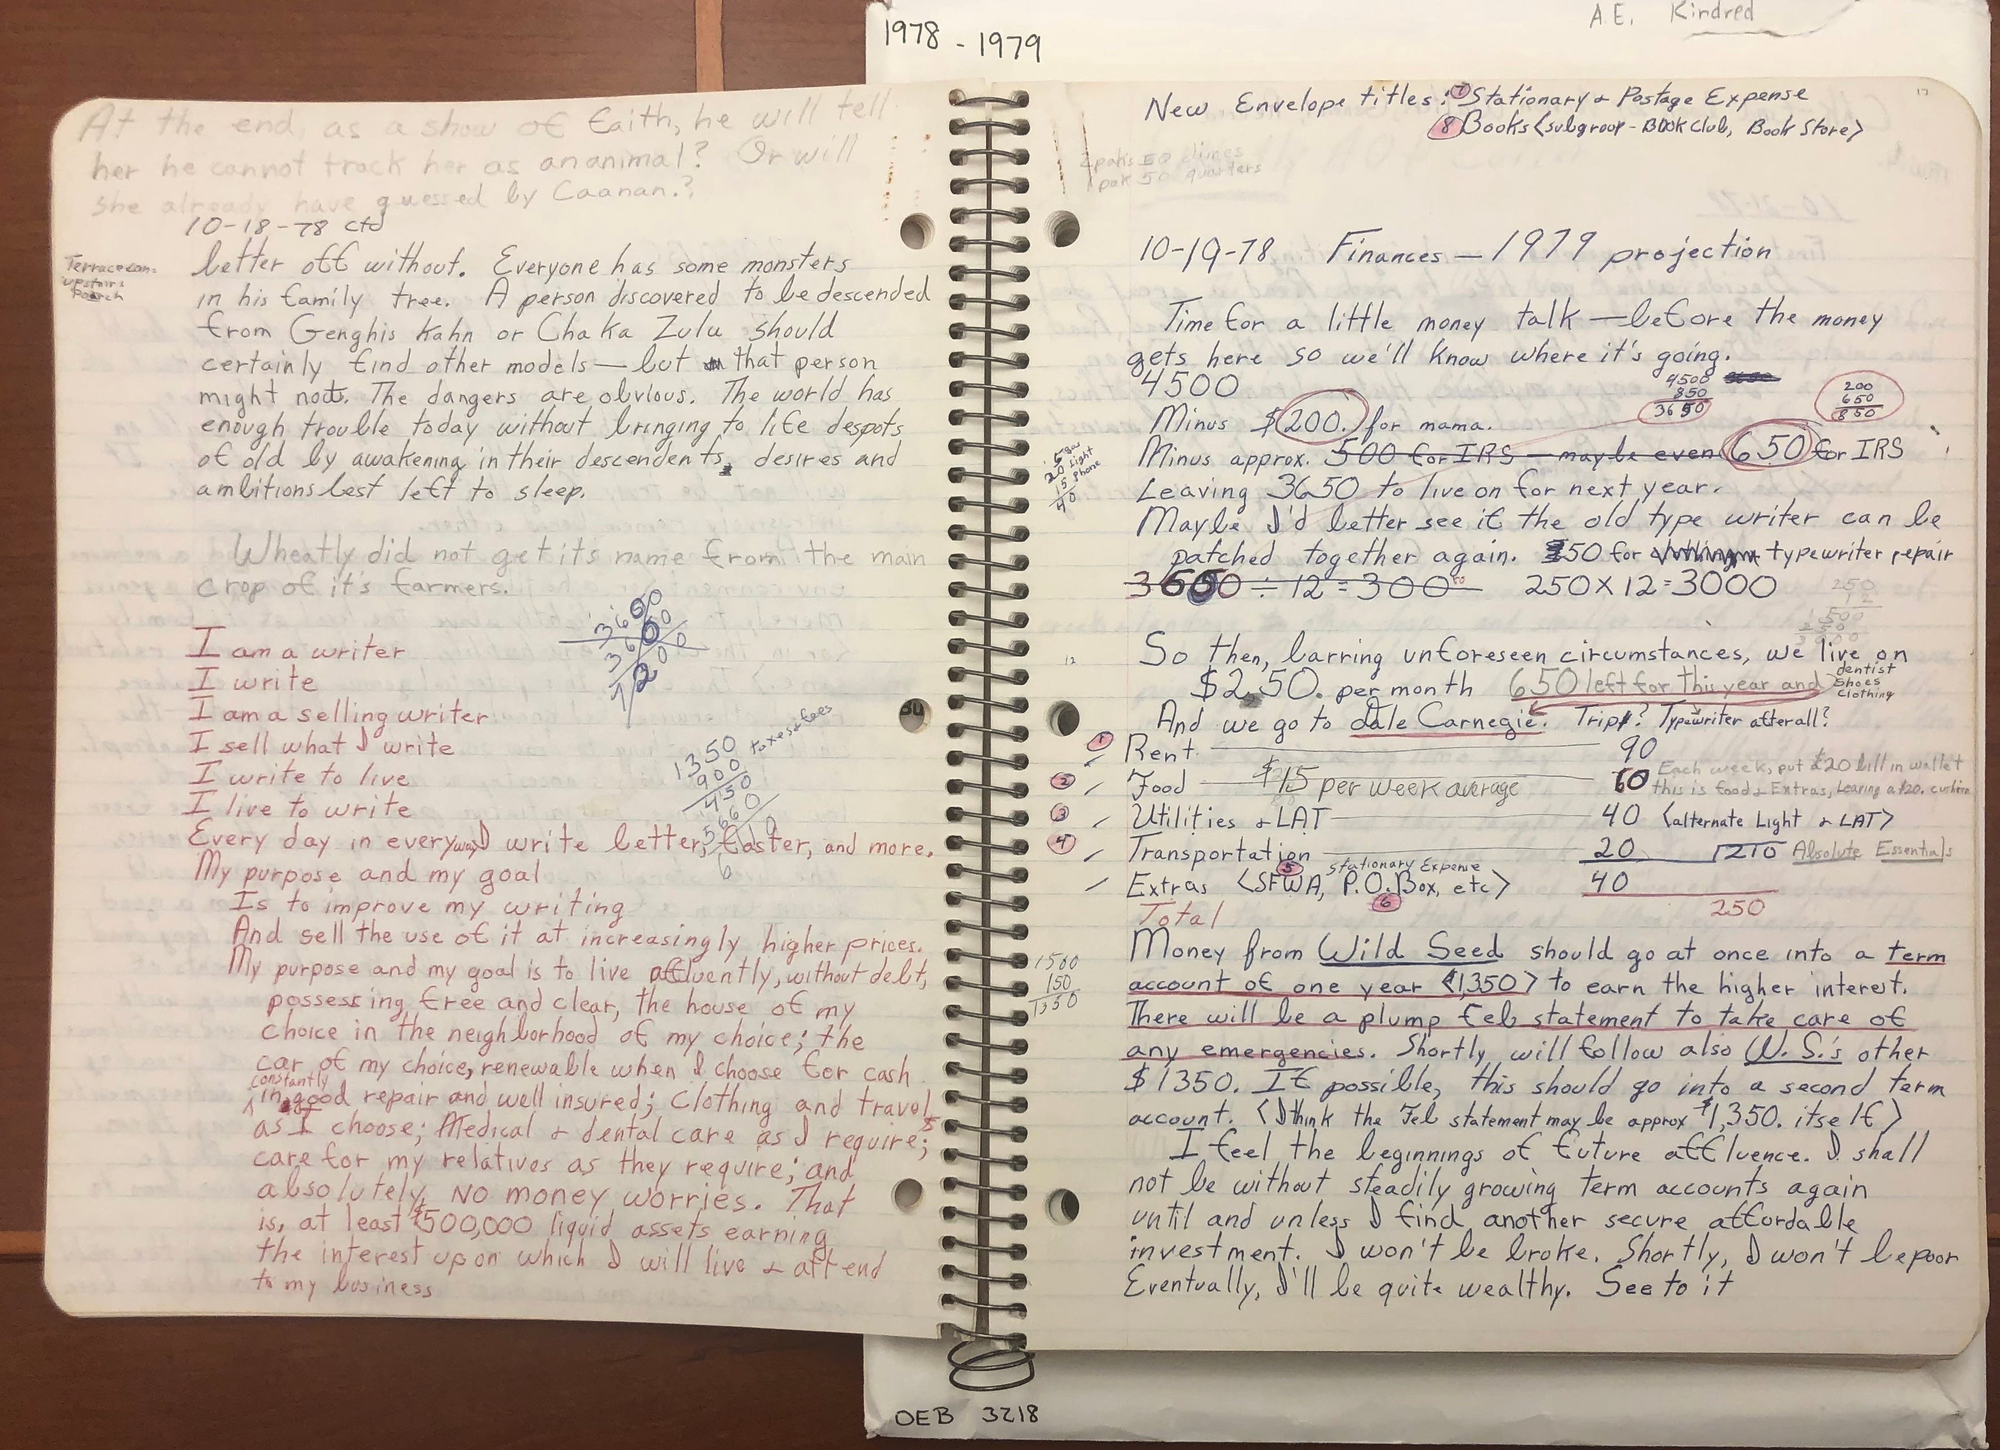 1978 - 1979
A.E. Kindred
At the end, as a show of faith, he will tell
her he cannot track her as an animal? Or will
she already have guessed by Caanan.?
10-18-78 ctd
Terrace con.
upstairs
Porch
better off without. Everyone has some monsters
in his family tree. A person discovered to be descended
from Genghis Kahn or Chaka Zulu should
certainly find other models — but that person
might not. The dangers are obvious. The world has
enough trouble today without bringing to life despots
of old by awakening in their descendents, desires and
ambitions best left to sleep.
Wheatly did not get its name from the main
crop of it's farmers.
3600
3600
7200
I am a writer
I write
I am a selling writer
I sell what I write
I write to live
I live to write
1350 taxes & fees
900
450
Every day in every way I write better, faster, and more.
My purpose and my goal
Is to improve my writing
And sell the use of it at increasingly higher prices.
My purpose and my goal is to live affluently, without debt,
possessing free and clear, the house of my
choice in the neighborhood of my choice; the
car of my choice, renewable when I choose for cash
constantly
in good repair and well insured; clothing and travel
as I choose; Medical & dental care as I require;
care for my relatives as they require; and
absolutely, NO money worries. That
is, at least $500,000 liquid assets earning
the interest upon which I will live & attend
to my business
New Envelope titles: 7 Stationary & Postage Expense
8 Books <subgroup - Book Club, Book Store>
2 paks 50 dimes
1 pak 50 quarters
10-19-78 Finances — 1979 projection
Time for a little money talk — before the money
gets here so we'll know where it's going.
4500
4500
850
3650
200
650
850
Minus $200. for mama.
Minus approx. 500 for IRS — maybe even 650 for IRS
5 gas
20 Light
15 Phone
40
Leaving 3650 to live on for next year.
Maybe I'd better see if the old type writer can be
patched together again. $50 for typewriter repair
3600 ÷ 12 = 300 250 X 12 = 3000
So then, barring unforeseen circumstances, we live on
$250. per month 650 left for this year and dentist
shoes
clothing
And we go to dale Carnegie. Trip? Typewriter after all?
1 Rent 90
2 Food $15 per week average 60 Each week, put $20 bill in wallet
this is food & Extras, Leaving a $20. cushion
3 Utilities & LAT 40 <alternate Light & LAT>
4 Transportation 20 210 Absolute Essentials
5 Stationary Expense
Extras <SFWA, P.O. Box, etc> 40
6
Total 250
Money from Wild Seed should go at once into a term
account of one year <1,350> to earn the higher interest.
1500
150
1350
There will be a plump Feb statement to take care of
any emergencies. Shortly, will follow also W. S.'s other
$1350. If possible, this should go into a second term
account. <I think the Feb statement may be approx $1,350. itself>
I feel the beginnings of future affluence. I shall
not be without steadily growing term accounts again
until and unless I find another secure affordable
investment. I won't be broke. Shortly, I won't be poor
Eventually, I'll be quite wealthy. See to it
OEB 3218